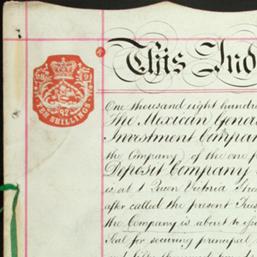 This Ind
TEN SHILLINGS
One thousand eight hundre
The Mexican Genera
Investment Company
the Company) of the one p
Deposit Company
is at 1 Queen Victoria Stre
after called the present Trus
the Company is about to
Seal for securing principal